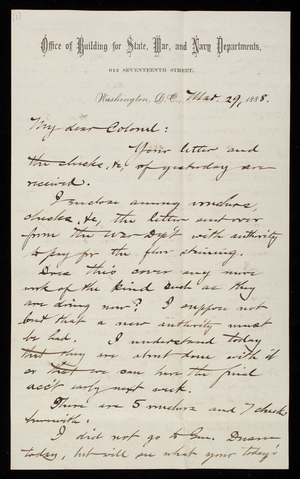 Office of Building for State, War, and Navy Departments,
612 SEVENTEENTH STREET.
Washington, D.C., Mar. 29, 1888.
My dear Colonel:
Your letter and
the checks, &c, of yesterday are
received.
I enclose among vouchers,
checks, &c, the letter sent over
from the War Dep't with authority
to pay for the floor staining.
Does this cover any more
work of the kind such as they
are doing now? I suppose not
but that a new authority must
be had. I understand today
that they are about done with it
or that we can have the final
acc't early next week.
There are 5 vouchers and 7 checks
herewith.
I did not go to Gen. Duane
today, but will see what your today's